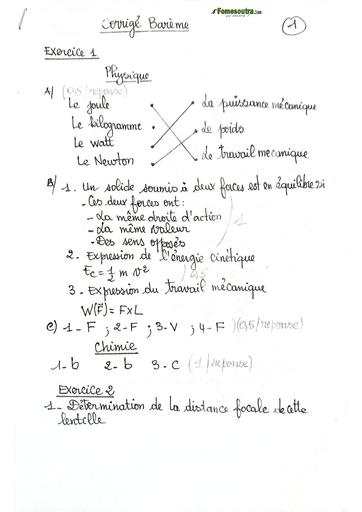 Fomesoutra.com
Corrigé Barème
1
Exercice 1
Physique
A/ (0,5/réponse)
Le joule . . La puissance mécanique
Le kilogramme . . Le poids
Le watt . . Le travail mecanique
Le Newton
B/ 1. Un solide soumis à deux forces est en équilibre si
- Ces deux forces ont :
- La même droite d'action
- La même valeur
- Des sens opposés
1
2 - Expression de l'énergie cinétique
Ec = 1/2 m v² 0,5
3 - Expression du travail mécanique
W(F⃗) = F x L
C) 1 - F ; 2 - F ; 3 - V ; 4 - F (0,5/réponse)
Chimie
1 - b 2 - b 3 - C (1/réponse)
Exercice 2
1 - Détermination de la distance focale de cette
lentille